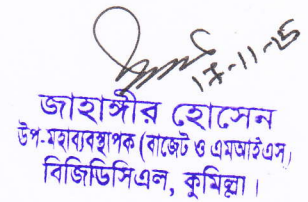 ১৭-১১-১৫
জাহাঙ্গীর হোসেন
উপ-মহাব্যবস্থাপক (বাজেট ও এমআইএস)
বিজিডিসিএল, কুমিল্লা।